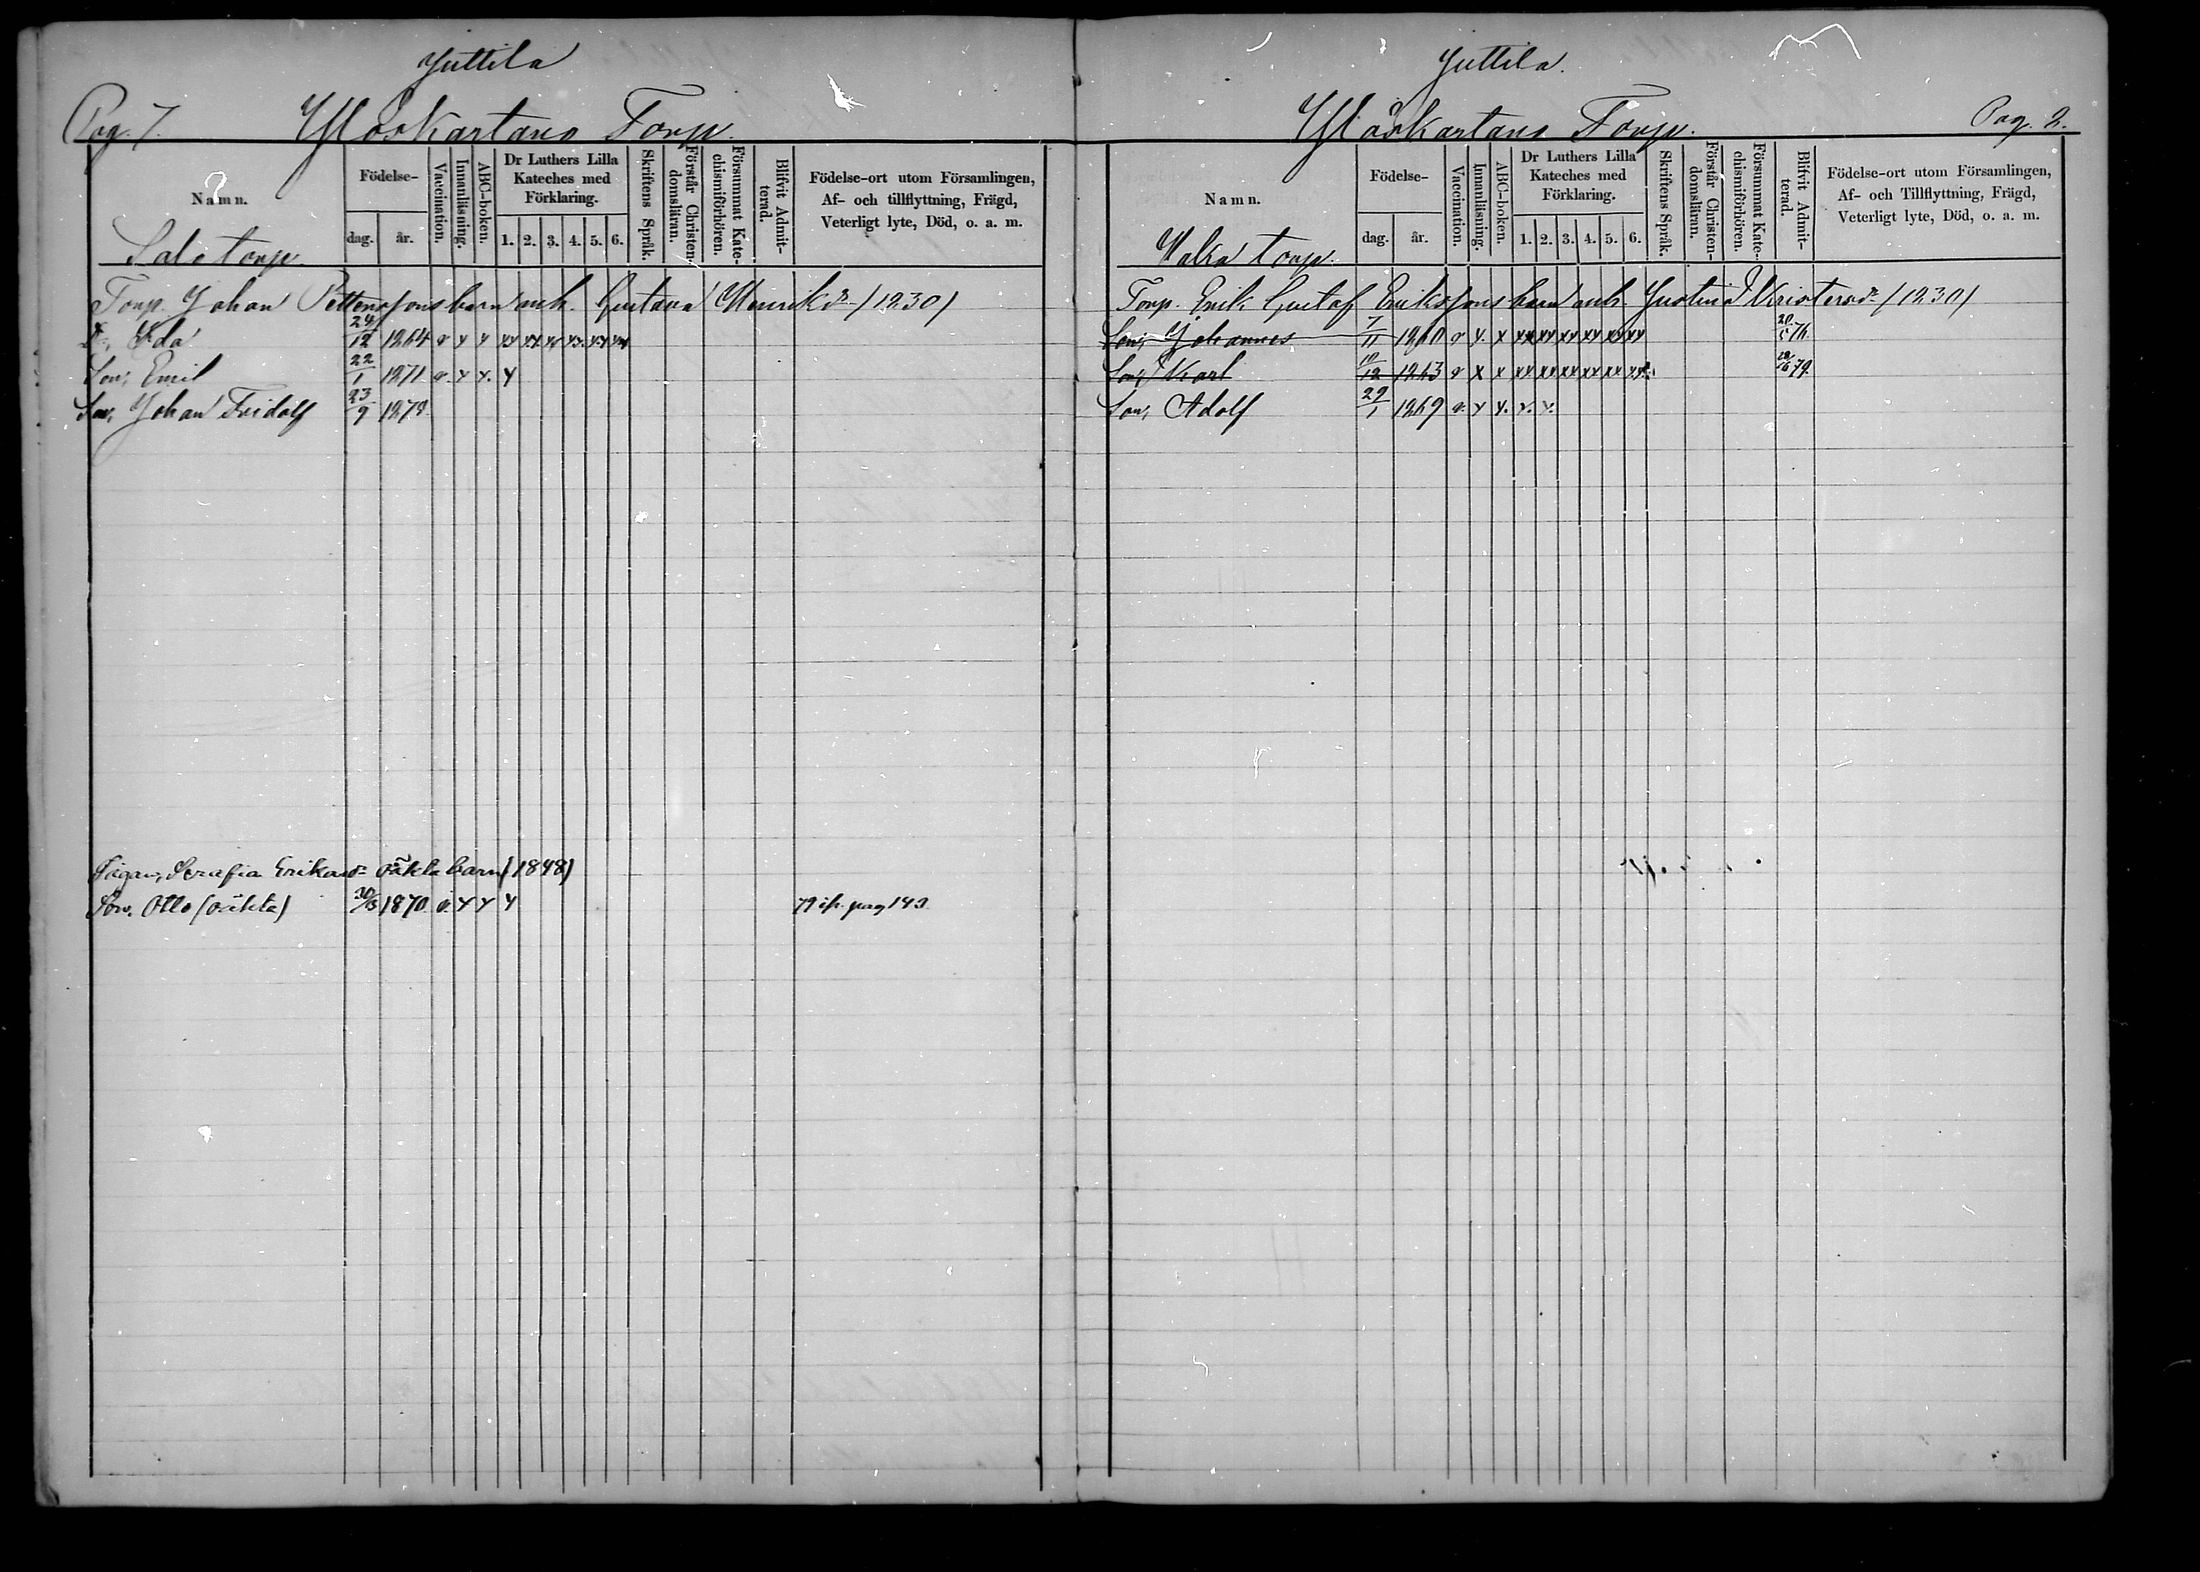 Juttila
Pag. 7. Yliskartano Torp.
Namn.
Födelse-
dag. år.
Vaccination.
Innanläsning.
ABC-boken.
Dr Luthers Lilla Kateches med Förklaring.
1. 2. 3. 4. 5. 6.
Skriftens Språk.
Förstår Christendomsläran.
Försummat Katechismiförhören.
Blifvit Admitterad.
Födelse-ort utom Församlingen,
Af- och tillflyttning, Frägd,
Veterligt lyte, Död, o. a. m.
Salo torp.
Torp. Johan Pettersons barn anh. Gustava Henriksdr (1830)
Dr, Ida 24/12 1864 v x x xx xx xx xx xx xx
Son, Emil 22/1 1871 v. x x. x
Son, Johan Fridolf 23/9 1878
Pigan, Serafia Eriksdr oäkta barn (1848)
Son, Otto (oäkta) 20/3 1870 v. x x x 79 ifr. pag 143
Juttila.
Yliskartano Torp. Pag. 8.
Namn.
Födelse-
dag. år.
Vaccination.
Innanläsning.
ABC-boken.
Dr Luthers Lilla Kateches med Förklaring.
1. 2. 3. 4. 5. 6.
Skriftens Språk.
Förstår Christendomsläran.
Försummat Katechismiförhören.
Blifvit Admitterad.
Födelse-ort utom Församlingen,
Af- och Tillflyttning, Frägd,
Veterligt lyte, Död, o. a. m.
torp.
Torp. Erik Gustaf Erikssons barn anh. Justina Kristersdr (1830)
Son, Johannes 7/11 1860 v x. x xx xx xx xx xx xx 76.
Son, Karl 10/12 1863 v x x xx xx xx xx xx xx 79
Son, Adolf 29/1 1869 v. x x. x. x.